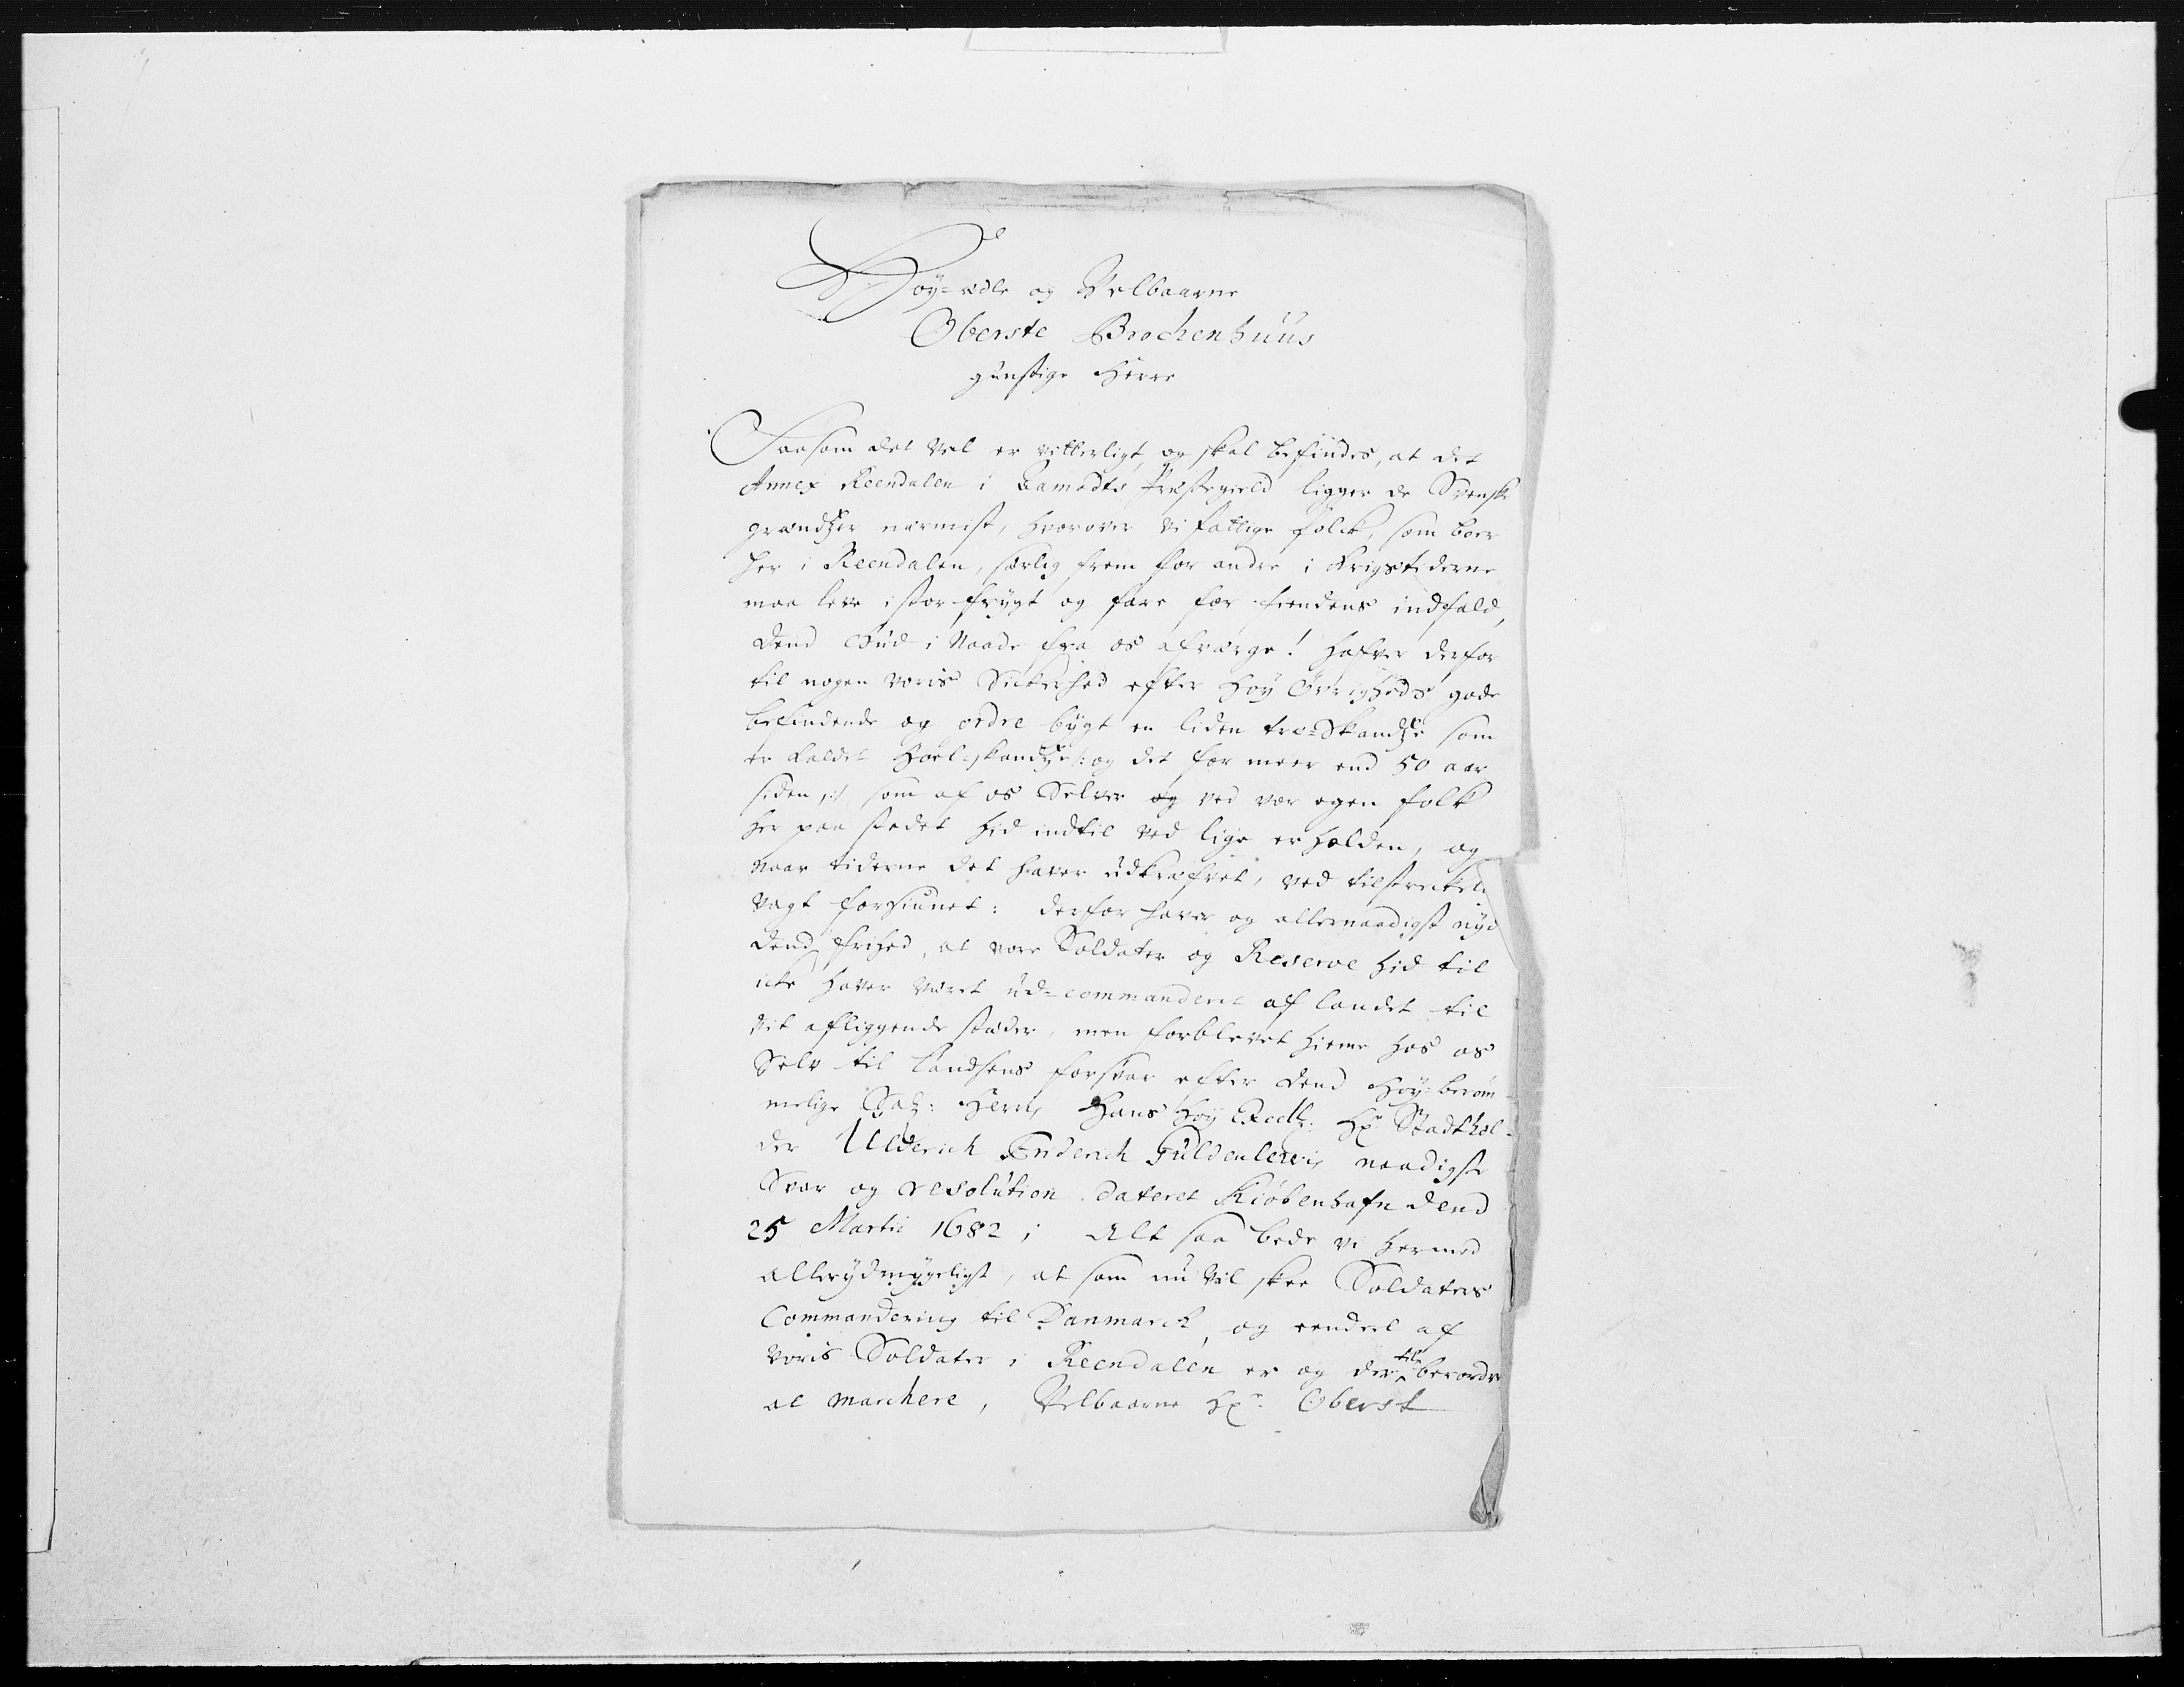 Høy-ædle og Velbaarne
Oberste Brochenhuus
gunstige Herre
Saasom det vel er vitterligt, og skal befindes, at det
Annex Reendalen i Aamodts Præstegield ligger de Svenske
grændtzer nærmist, hvorover vi fattige folck, som boer
her i Reendalen, særlig frem for andre i Krigstiderne
maa leve i stor frygt og fare for fiendens indfald,
dend Gud i Naade fra os afværge! hafver derfor
til nogen voris Sickerhed efter høy Øvrigheds gode
befindende og ordre bygt en liden træ-Skandtze som
er kaldet Hoel-skandtze /: og det for meer end 50 aar
siden :/ som af os Selver og ved vor egen folk
her paa stedet hid indtil ved lige er holden, og
naar tiderne det haver udkræfvet, ved tilstreckel
vagt forsiunet: derfor haver og allernaadigst nyd
dend frihed, at vore Soldater og Reserve hid til
icke haver været ud-commanderet af landet til
vit afliggende stæder, men forblevet hieme hos os
Selv til landsens forsvar efter dend Høy-berøm-
melige Sal: Herris Hans Høy Excell: Hr Stadthol-
der Ulderich Friderich Guldenlewis naadigste
Svar og resolution dateret Kiøbenhafn dend
25 Martii 1682; Alt saa bede vi hermed
allerydmygeligst, at som nu vil skee Soldaters
Commandering til Danmarck, og eendeel af
voris Soldater i Reendalen er og der til beordr
at marchere, Velbaarne Hr Oberst